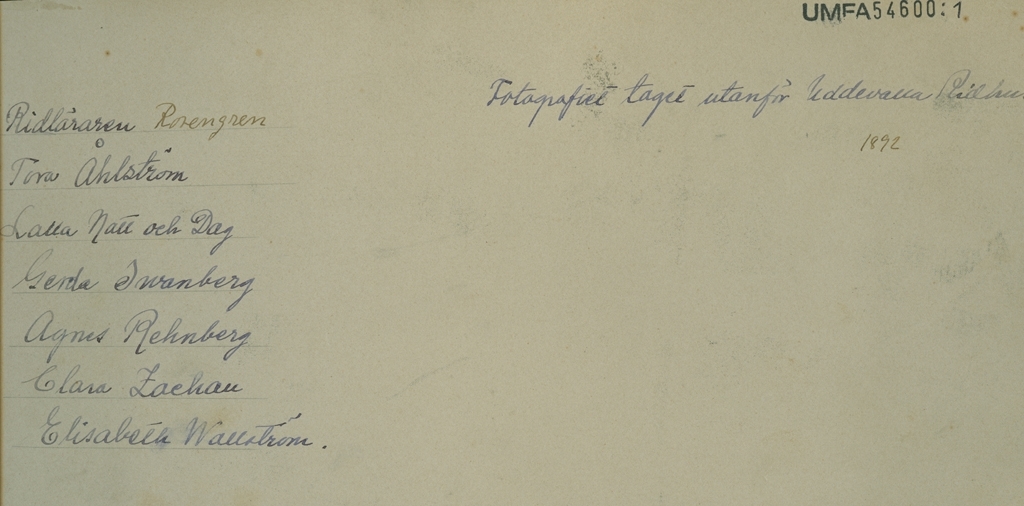 UMFA54600:1
Fotografiet taget utanför Uddevalla Ridhus
1892
Ridläraren Rosengren
Tora Åhlström
Lalla Natt och Dag
Gerda Svanberg
Agnes Rehnberg
Clara Zachau
Elisabeth Wallström.